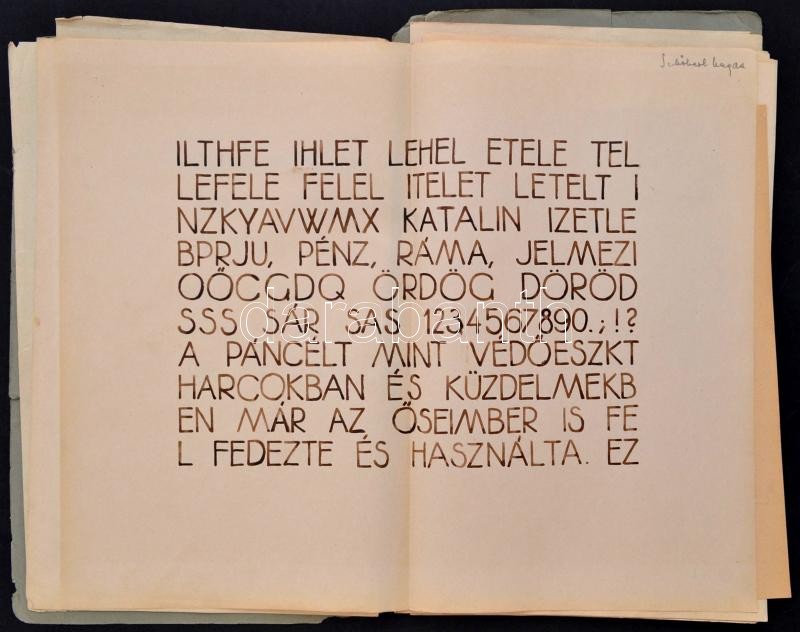 ILTHFE IHLET LEHEL ETELE TEL
LEFELE FELEL ITELET LETELT I
NZKYAVWMX KATALIN IZETLE
BPRJU, PÉNZ, RÁMA, JELMEZI
OŐCGDQ ÖRDÖG DÖRÖD
SSS SÁR SAS 1234567890.;!?
A PÁNCÉLT MINT VÉDŐESZKT
HARCOKBAN ÉS KÜZDELMEKB
EN MÁR AZ ŐSEIMBER IS FE
L FEDEZTE ÉS HASZNÁLTA. EZ
darabanth